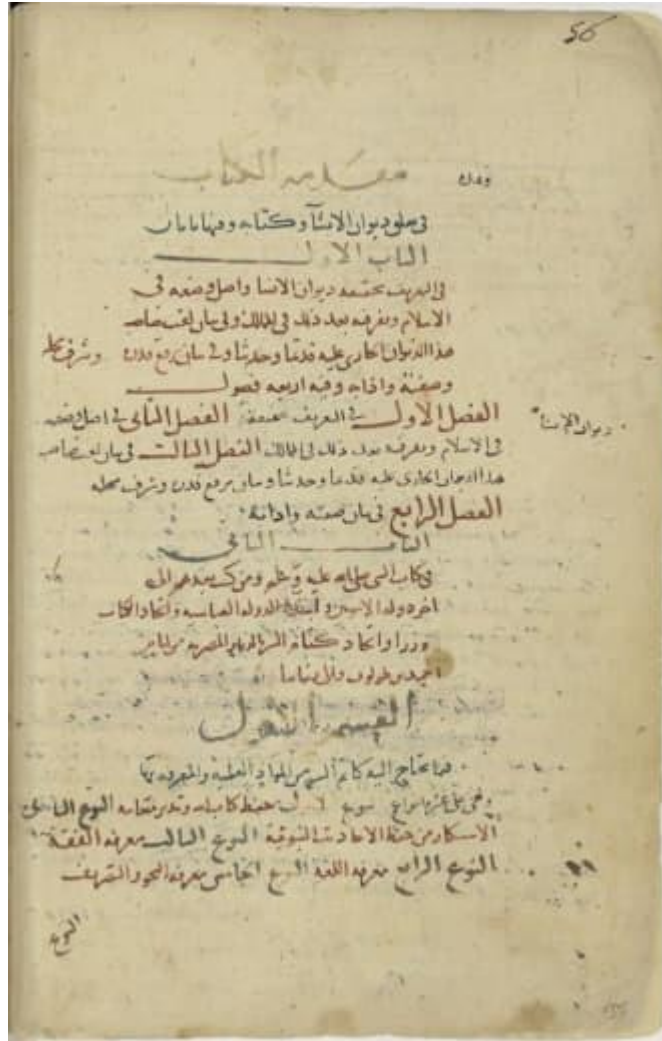 56
مقدمة الكتاب
في معنى ديوان الانشا وكتابه وفيها بابان
الباب الاول
في التعريف بحقيقة ديوان الانشا واصل وضعه في
الاسلام وتفرقه بعد ذلك في الممالك وفي بيان
هذا الديوان الجاري عليه قديما وحديثا وفي بيان رفع قدره وشرف محله
وصفته وادابه وفيه اربعة فصول
الفصل الاول في التعريف بحقيقة الفصل الثاني في اصل وضعه
ديوان الانشا
في الاسلام وتفرقه بعد ذلك في الممالك الفصل الثالث في بيان
هذا الديوان الجاري عليه قديما وحديثا وبيان رفع قدره وشرف محله
الفصل الرابع في بيان صفته وادابه
الباب الثاني
في كتاب النبي صلى الله عليه وسلم ومن كتب بعدهم الى
اخر دولة الدولة العباسية واتخاذ الكتاب
وزرا واتخاذ كتابة المصرية من
احمد بن طولون
القسم الاول
فيما يحتاج اليه كاتب السر من المواد العلمية والمعرفة بها
وهي على عشرة انواع النوع الاول حفظ كتاب الله النوع الثاني
الاستكثار من حفظ الاحاديث النبوية النوع الثالث معرفة الفقه
النوع الرابع معرفة اللغة النوع الخامس معرفة النحو والتصريف
النوع